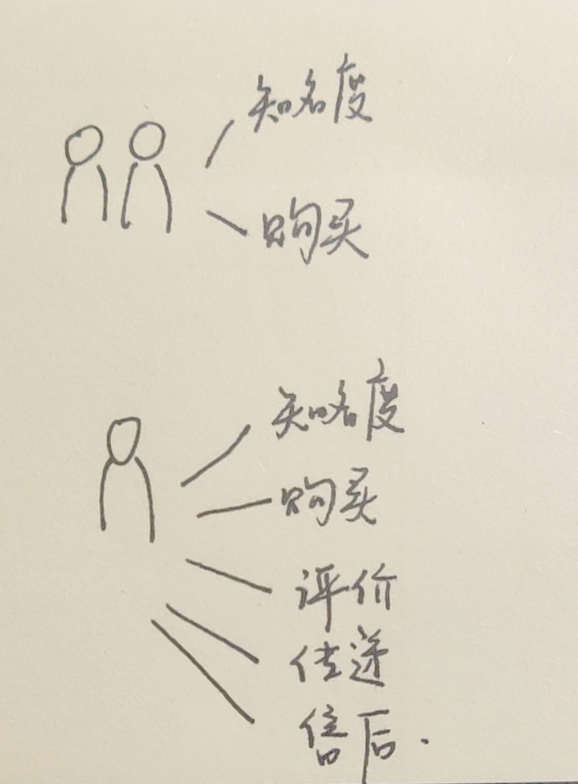 知名度
购买
知名度
购买
评价
传递
售后.